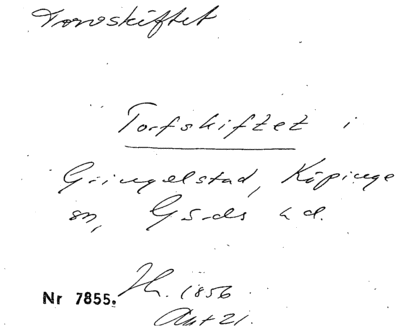 Torvskiftet
Torfskiftet i
Gringelstad, Köpinge
sn, Gärds hd.
Nr 7855. Th. 1856
Akt 21.